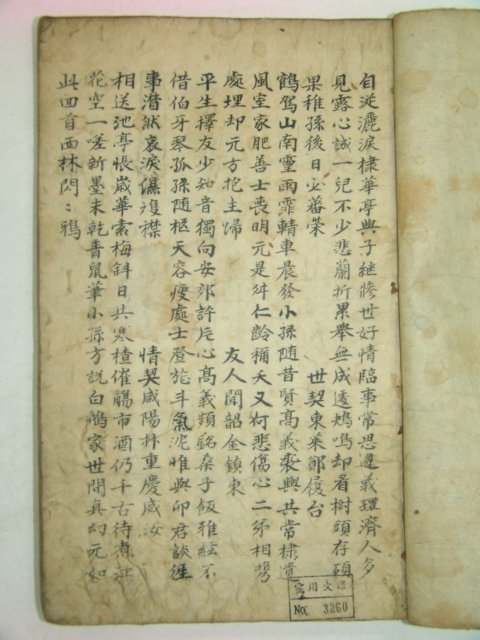 自從灑淚棣華亭與子繼修世好情臨事常思遵義理濟人多
見露心誠一兒不少悲蘭折累擧無成遠鴆鳴却看樹頭存碩
果稚孫後日必蕃榮　世契東萊鄭履台
鶴駕山南靈雨霏輤車晨發小孫隨昔賢高義兼興共常棣遺
風室家肥善士喪明元是舛仁齡稱夭又何悲傷心二弟相
處埋却元方抱主歸　友人聞韶金鎭東
平生擇友少知音獨向安郊許片心高義頻銘桑子飯雅絃不
借伯牙琴孤孫隨柩天容瘦處士登旅斗氣沈惟與印君談
事潸然哀淚濕襟　情契咸陽朴重慶
相送池亭悵歲華素梅斜日共寒楂催觴市酒仍千古待煮
花空一嗟新墨未乾靑鼠華小孫方說白鴨家世間眞幻元如
此四首西林閃閃鴉
宏川文庫
No. 3260